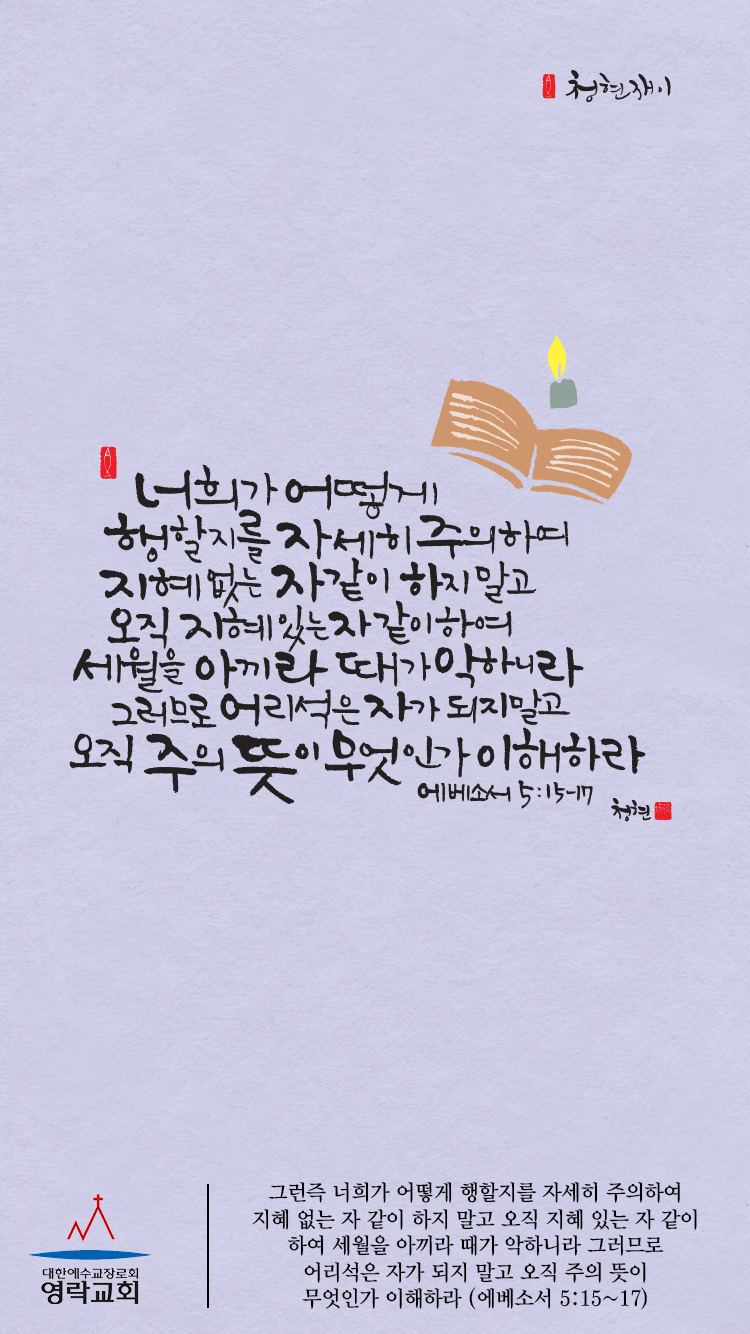 청현재이
너희가 어떻게
행할지를 자세히 주의하며
지혜 없는 자같이 하지말고
오직 지혜있는 자 같이하여
세월을 아끼라 때가 악하니라
그러므로 어리석은 자가 되지말고
오직 주의 뜻이 무엇인가 이해하라
에베소서 5:15-17
청현
그런즉 너희가 어떻게 행할지를 자세히 주의하여
지혜 없는 자 같이 하지 말고 오직 지혜 있는 자 같이
하여 세월을 아끼라 때가 악하니라 그러므로
어리석은 자가 되지 말고 오직 주의 뜻이
무엇인가 이해하라 (에베소서 5:15~17)
대한예수교장로회
영락교회